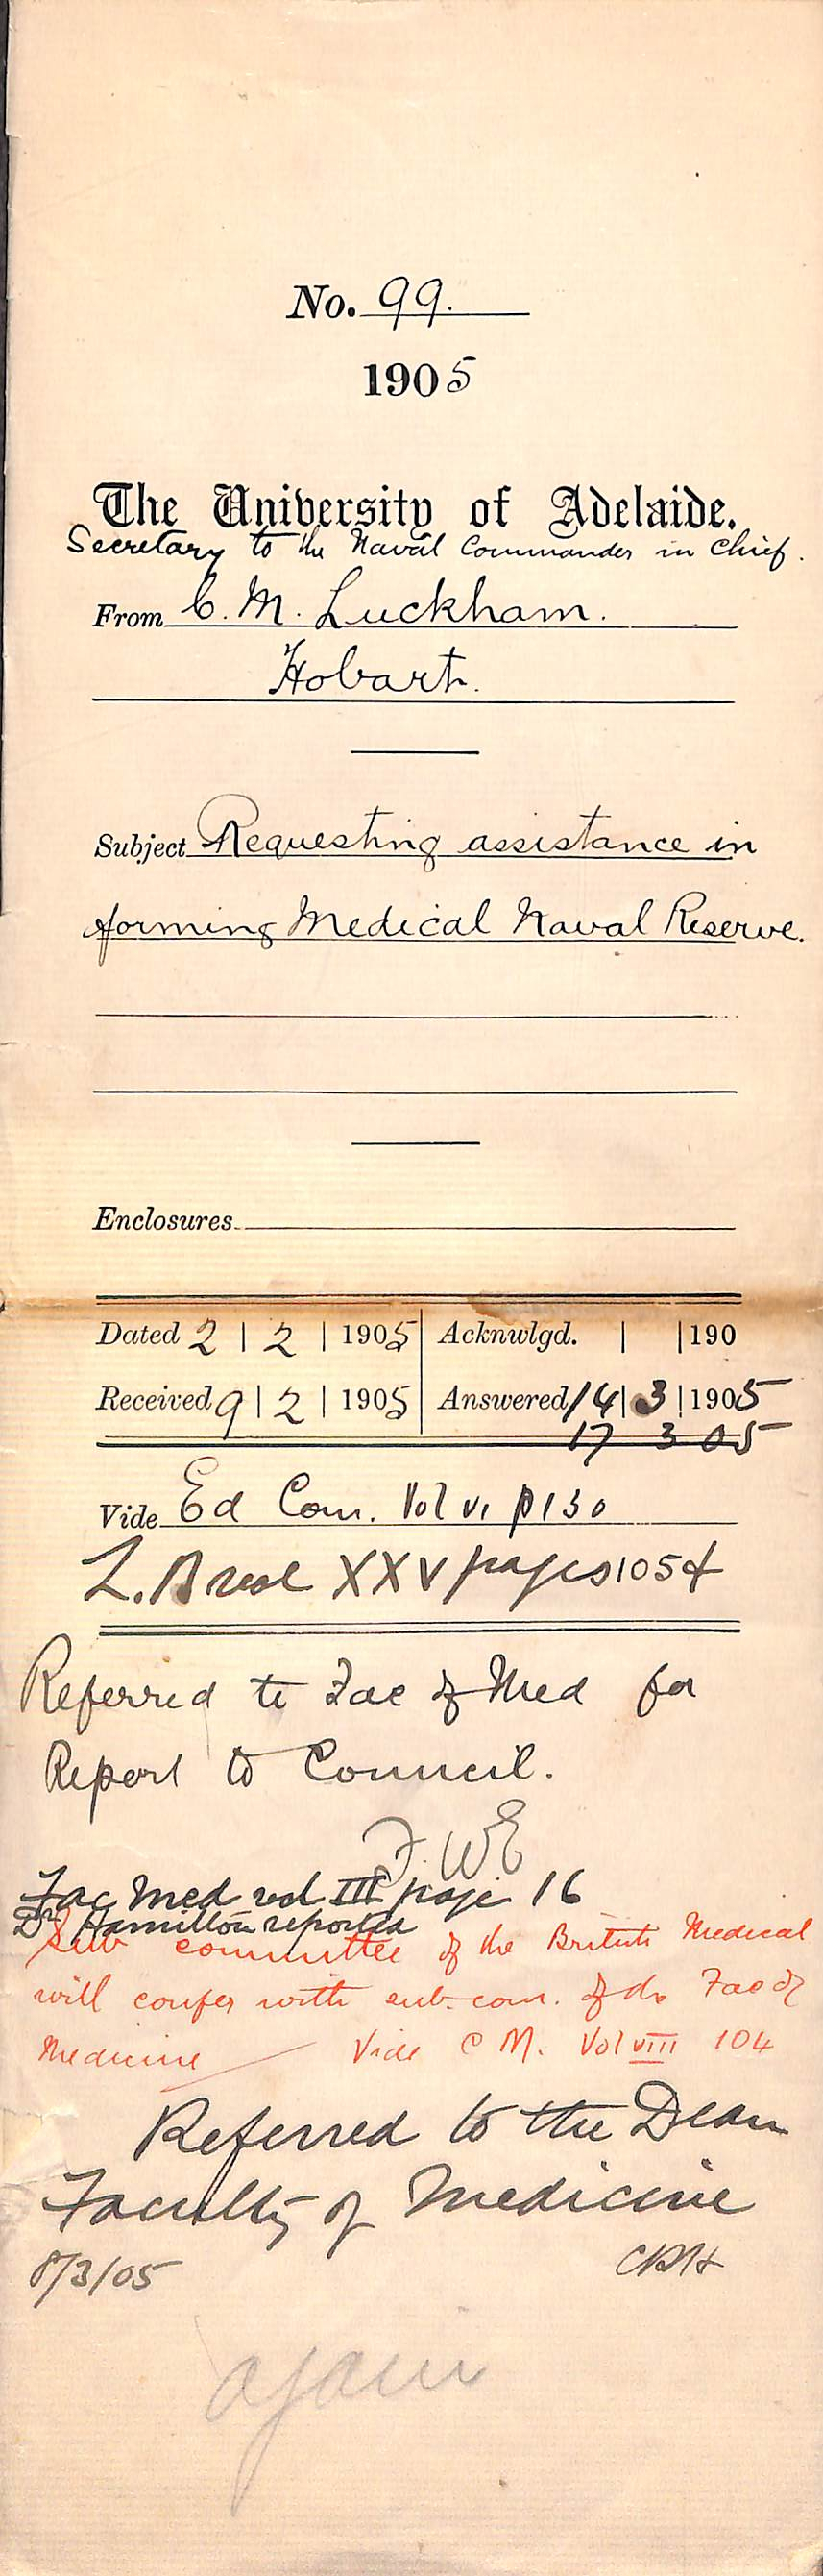 No. 99.
1905
The University of Adelaide.
Secretary to the Naval Commander in Chief.
From C. M. Luckham.
Hobart.
Subject Requesting assistance in
forming Medical Naval Reserve.
Enclosures
Dated 2 | 2 | 1905 | Acknwlgd. | | 190
Received 9 | 2 | 1905 | Answered 14 | 3 | 1905
17 3 05
Vide Ed Com. Vol VI p 130
L.B vol XXV pages 105 &
Referred to Fac of Med for
Report to Council.
F. WE
Fac Med vol III page 16
Dr Hamilton reported
Sub committee of the British Medical
will confer with sub. com. of the Fac of
Medicine Vide C M. Vol VIII 104
Referred to the Dean
Faculty of Medicine
8/3/05 CRH
again